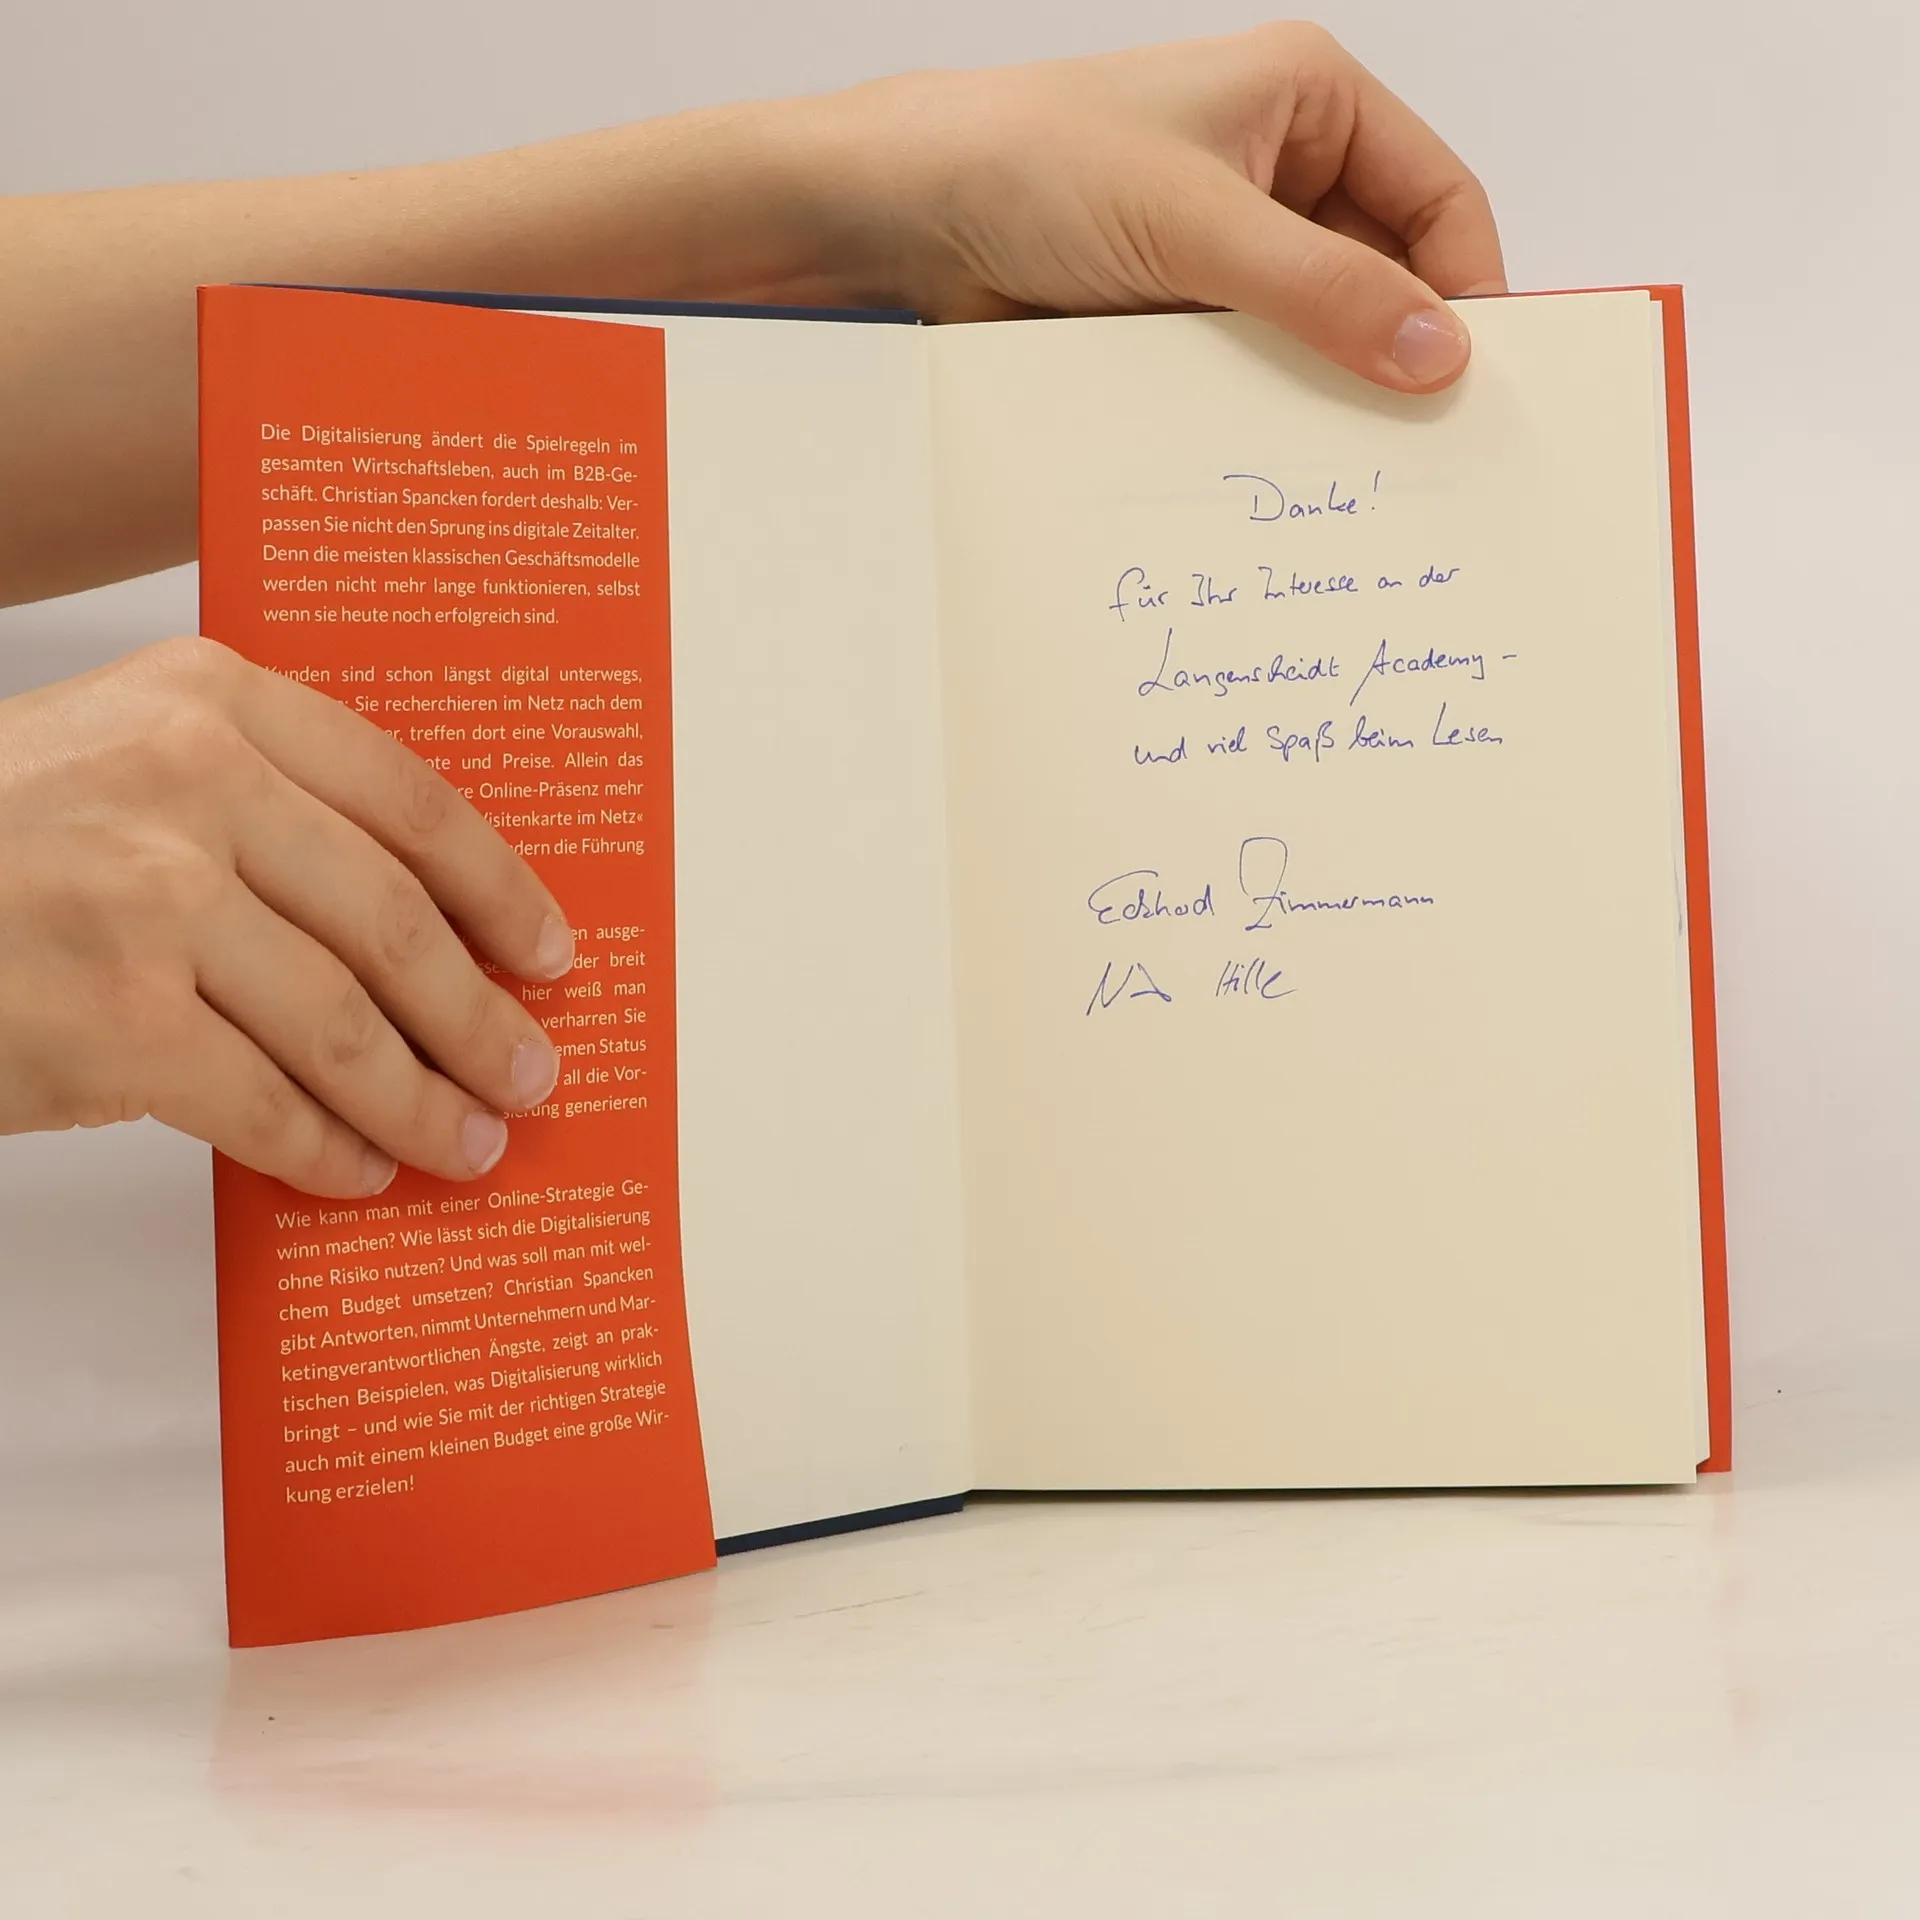 Die Digitalisierung ändert die Spielregeln im
gesamten Wirtschaftsleben, auch im B2B-Ge-
schäft. Christian Spancken fordert deshalb: Ver-
passen Sie nicht den Sprung ins digitale Zeitalter.
Denn die meisten klassischen Geschäftsmodelle
werden nicht mehr lange funktionieren, selbst
wenn sie heute noch erfolgreich sind.
Kunden sind schon längst digital unterwegs,
Sie recherchieren im Netz nach dem
treffen dort eine Vorauswahl,
und Preise. Allein das
Online-Präsenz mehr
Visitenkarte im Netz«
die Führung
ausge-
der breit
hier weiß man
verharren Sie
Status
all die Vor-
generieren
Wie kann man mit einer Online-Strategie Ge-
winn machen? Wie lässt sich die Digitalisierung
ohne Risiko nutzen? Und was soll man mit wel-
chem Budget umsetzen? Christian Spancken
gibt Antworten, nimmt Unternehmern und Mar-
ketingverantwortlichen Ängste, zeigt an prak-
tischen Beispielen, was Digitalisierung wirklich
bringt – und wie Sie mit der richtigen Strategie
auch mit einem kleinen Budget eine große Wir-
kung erzielen!
Danke!
für Ihr Interesse an der
Langenscheidt Academy –
und viel Spaß beim Lesen
Eckhard Zimmermann
Hille